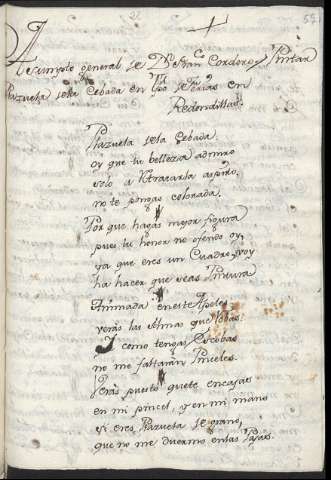 Assumpto general de Dn. Franco. Cordoro, y Pintar
Plazuela de la Cebada en tpo de ferias en
Redondillas.
Plazuela de la Cebada.
oy que tu belleza admiro
solo a retratarla aspiro,
no te pongas colorada.
Por que hagas mejor figura
pues tu honor no ofendo oy,
ya que eres un Cuadro, voy
ha hacer que seas Pintura
Animada en este Apoles
verás las Almas que robas.
Y como tengas Escobas
no me faltarán Pinceles.
Verás puesto quete encajas
en mi pincel, y en mi mano
si eres Plazuela de grano,
que no me duermo en las Pajas.